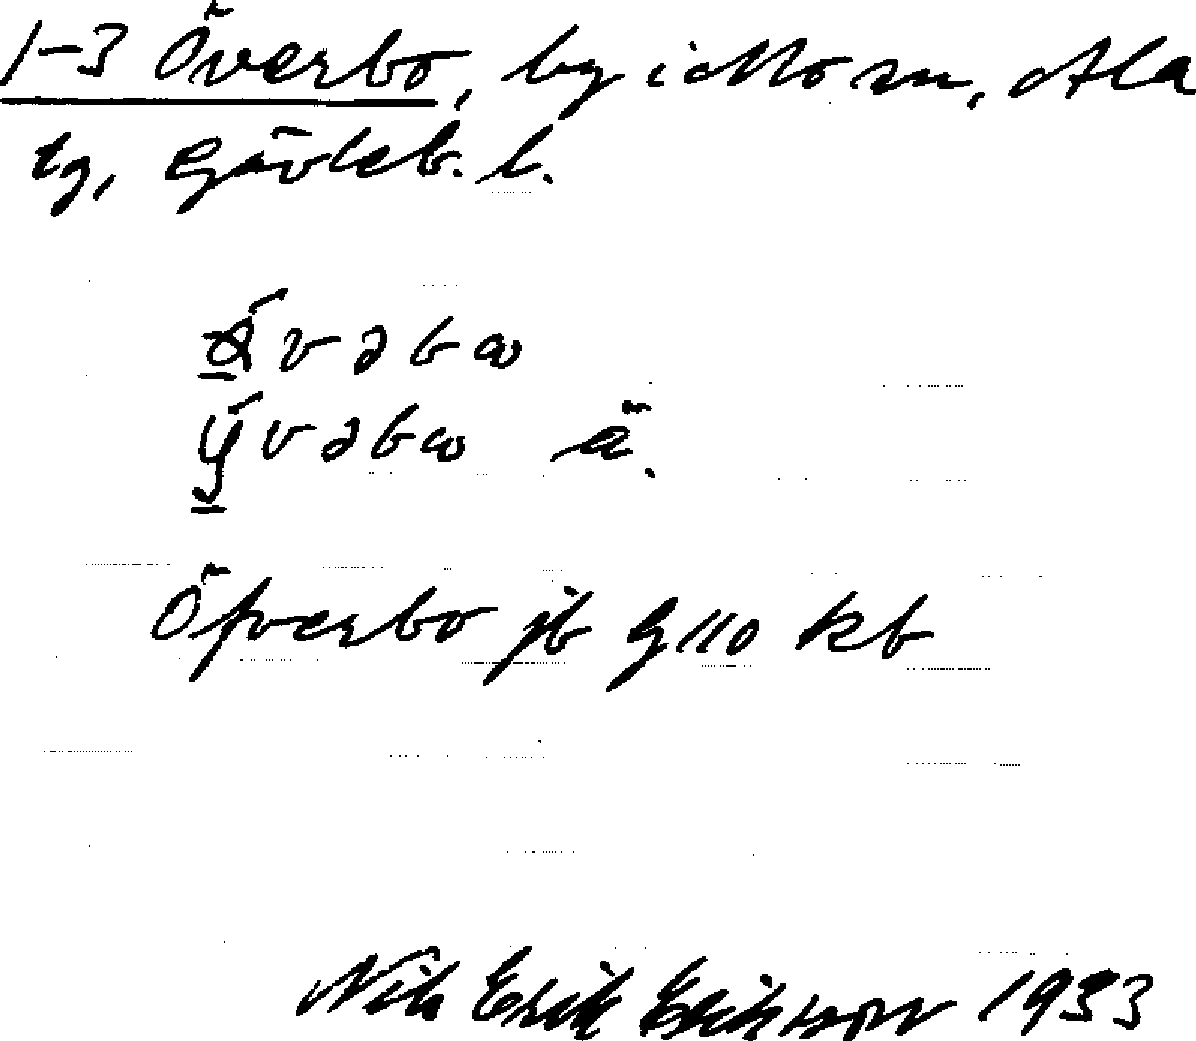 1-3 Överbo, by i Mo sn, Ala
tg, Gävleb. l.
vəbω
ývəbω ä.
Öfverbo jb G110 kb
Nils Erik Eriksson 1933